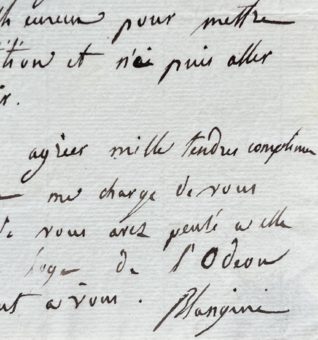 heureux pour mettre
ition et n'ai puis aller
ir.
agréer mille tendres complimen
me charge de vous
de vous avez pensé a elle
loge de l'Odeon
ut a vous. Blangini